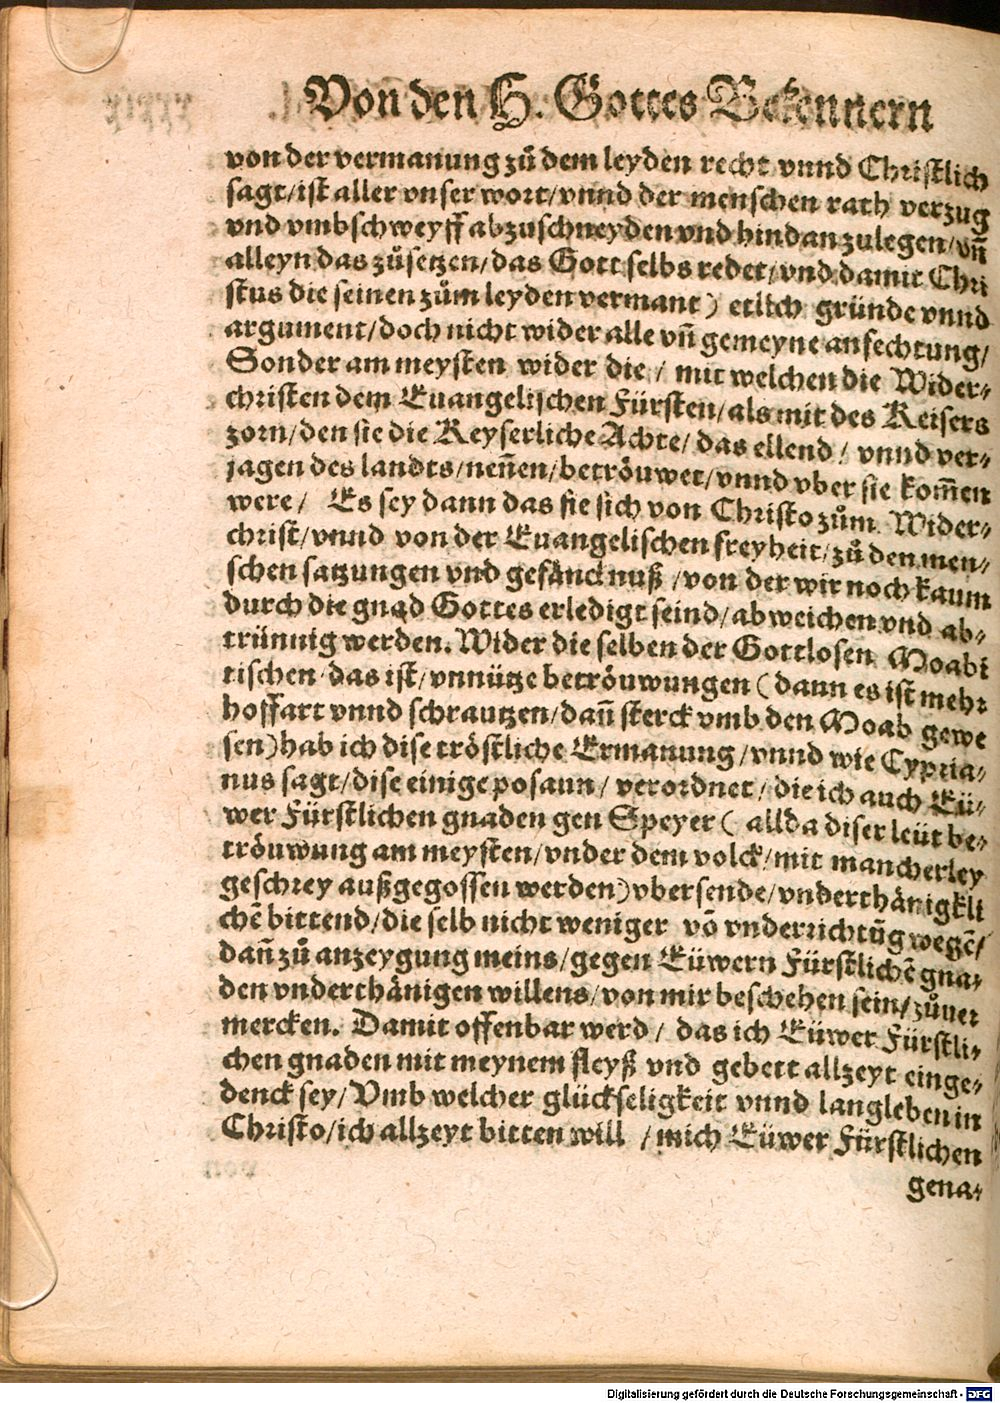 Von den H. Gottes Bekennern
von der vermanung zů dem leyden recht vnnd Christlich
sagt/ist aller vnser wort/vnnd der menschen rath verzug
vnd vmbschweyff abzuschneyden vnd hindan zulegen/vñ
alleyn das zůsetzen/das Gott selbs redet/vnd damit Chri
stus die seinen zům leyden vermant) etlich gründe vnnd
argument/doch nicht wider alle vñ gemeyne anfechtung/
Sonder am meysten wider die/ mit welchen die Wider⸗
christen dem Euangelischen Fürsten/als mit des Keisers
zorn/den sie die Keyserliche Achte/das ellend/ vnnd ver⸗
jagen des landts/neñen/betröuwet/vnnd vber sie kom̃en
were/ Es sey dann das sie sich von Christo zům Wider⸗
christ/vnnd von der Euangelischen freyheit/zů den men⸗
schen satzungen vnd gefäncknuß/von der wir noch kaum
durch die gnad Gottes erledigt seind/abweichen vnd ab⸗
trünnig werden. Wider die selben der Gottlosen Moabi
tischen/das ist/vnnütze betröuwungen (dann es ist mehr
hoffart vnnd schrautzen/dañ sterck vmb den Moab gewe
sen) hab ich dise tröstliche Ermanung/vnnd wie Cypria⸗
nus sagt/dise einige posaun/ verordnet/die ich auch Eü⸗
wer Fürstlichen gnaden gen Speyer ( allda diser leüt be⸗
tröuwung am meysten/vnder dem volck/mit mancherley
geschrey außgegossen werden) vbersende/vnderthänigkli
chẽ bittend/die selb nicht weniger võ vnderrichtũg wegẽ/
dañ zů anzeygung meins/gegen Eüwern Fürstlichẽ gna⸗
den vnderthänigen willens/von mir beschehen sein/zůuer
mercken. Damit offenbar werd/ das ich Eüwer Fürstli⸗
chen gnaden mit meynem fleyß vnd gebett allzeyt einge⸗
denck sey/Vmb welcher glückseligkeit vnnd langleben in
Christo/ich allzeyt bitten will /mich Eüwer Fürstlichen
gena⸗
Digitalisierung gefördert durch die Deutsche Forschungsgemeinschaft - DFG